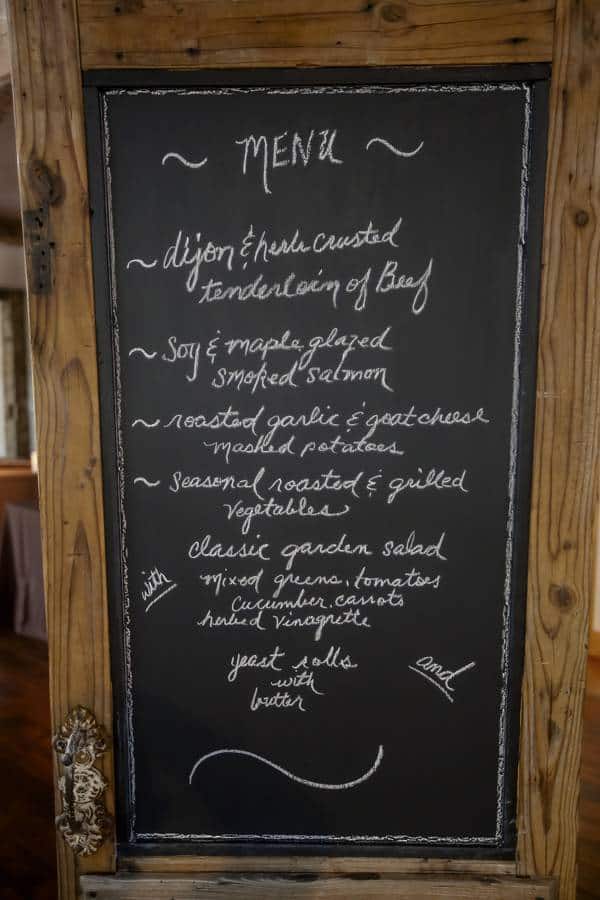 ~ MENU ~
~ dijon & herb crusted
tenderloin of Beef
~ Soy & maple glazed
smoked salmon
~ roasted garlic & goat cheese
mashed potatoes
~ Seasonal roasted & grilled
vegetables
classic garden salad
with
mixed greens, tomatoes
cucumber, carrots
herbed vinagrette
and
yeast rolls
with
butter